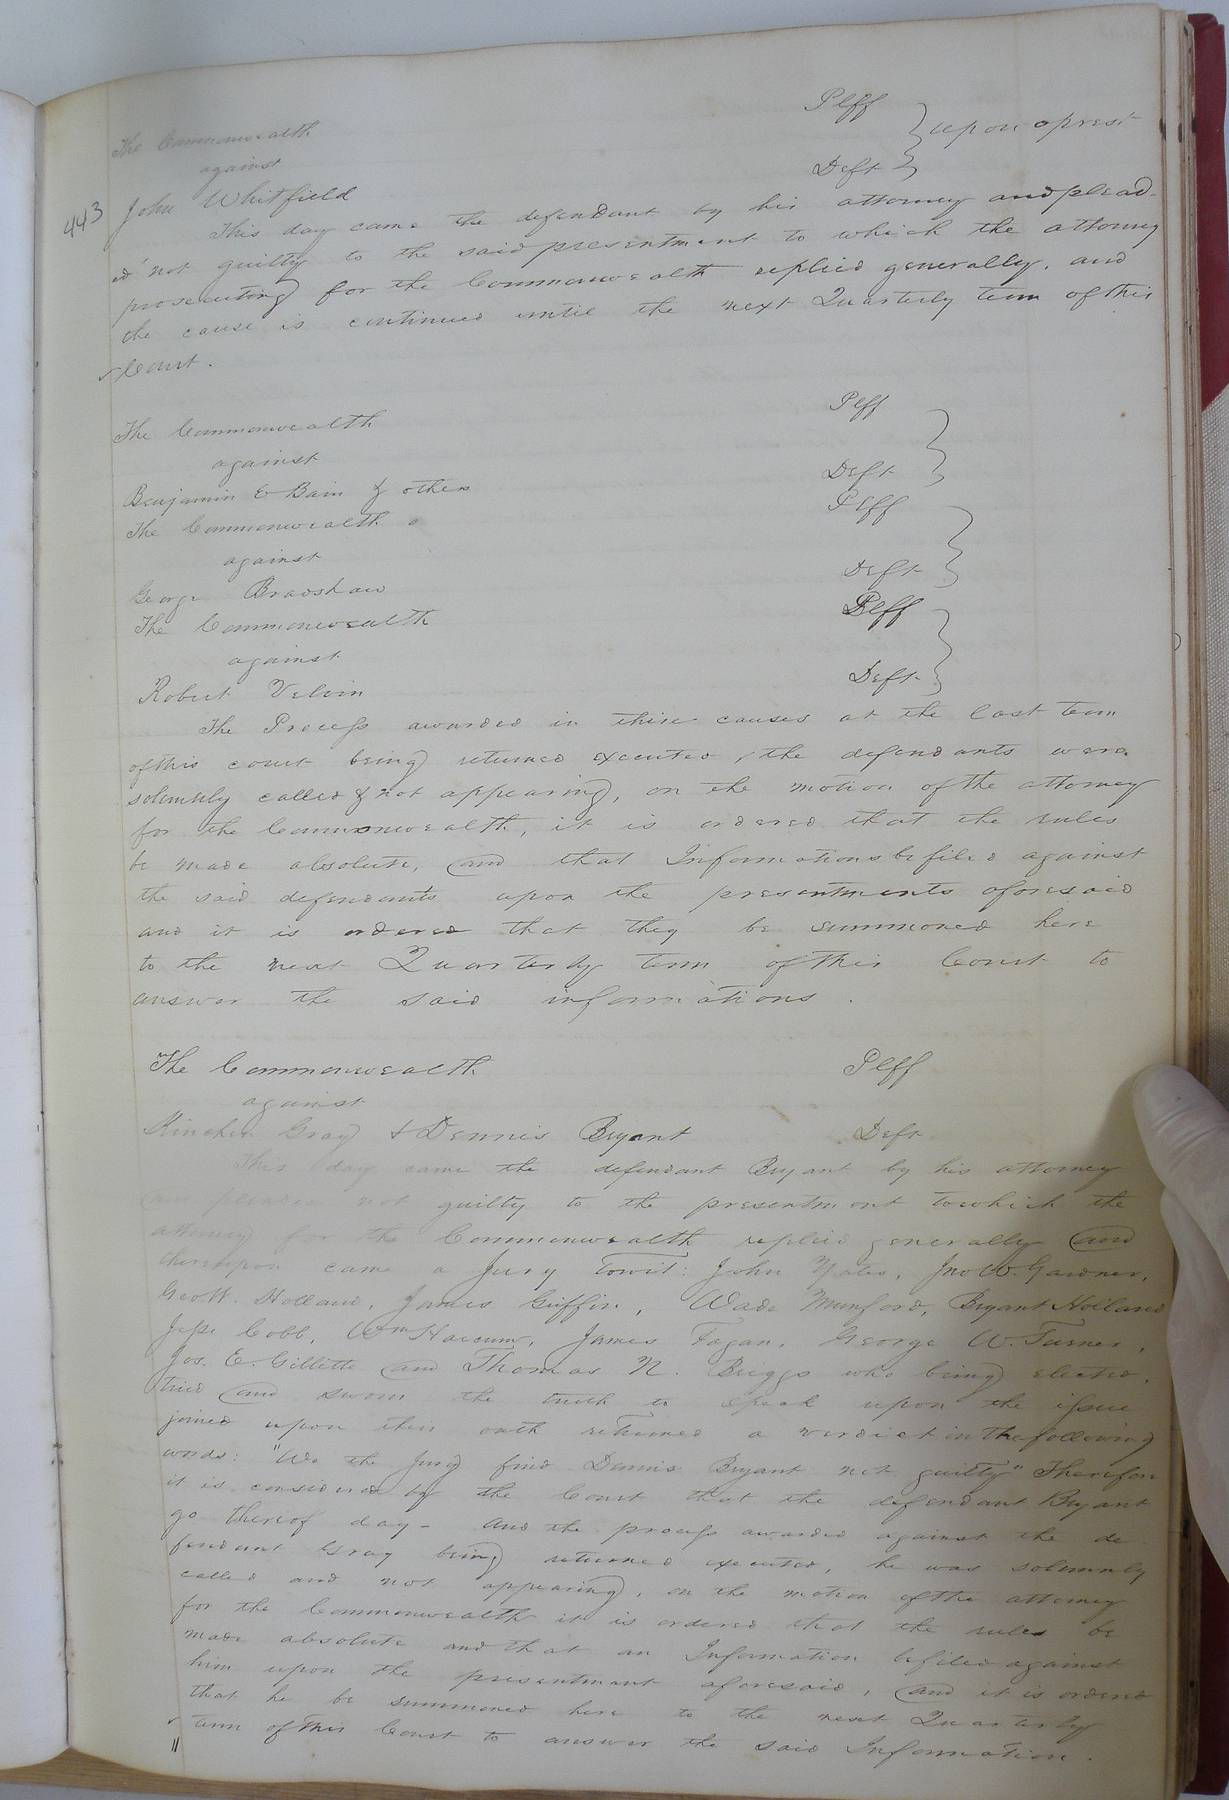 The Commonwealth Plff
against } upon a prest
John Whitfield Deft
443
This day came the defendant by his attorney and plead-
ed not guilty to the said presentment to which the attorney
prosecuting for the Commonwealth replied generally. and
the cause is continued until the next Quarterly term of this
Court.
The Commonwealth Plff
against }
Benjamin E Bain & others Deft
The Commonwealth Plff
against }
George Bradshaw Deft
The Commonwealth Plff
against }
Robert Velvin Deft
The Process awarded in these causes at the last term
of this court being returned executed, the defendants were
solemnly called & not appearing, on the motion of the attorney
for the Commonwealth, it is ordered that the rules
be made absolute, and that Informations be filed against
the said defendants upon the presentments aforesaid
and it is ordered that they be summoned here
to the next Quarterly term of this Court to
answer the said informations.
The Commonwealth Plff
against
Kinchen Gray & Dennis Bryant Deft
This day came the defendant Bryant by his attorney
and pleaded not guilty to the presentment to which the
attorney for the Commonwealth replied generally and
thereupon came a Jury Towit: John Yates, Jno W. Gardner,
Geo W. Holland, James Griffin, Wade Munford, Bryant Holland
Jesse Cobb, Wm Harcum, James Fagan, George W. Turner,
Jos. E. Gillette and Thomas N. Briggs who being elected,
tried and sworn the truth to speak upon the issue
joined upon their oath returned a verdict in the following
words: "We the Jury find Dennis Bryant not guilty" Therefore
it is considered by the Court that the defendant Bryant
go thereof day - and the process awarded against the de
fendant Gray being returned executed, he was solemnly
called and not appearing, on the motion of the attorney
for the Commonwealth it is ordered that the rules be
made absolute and that an Information be filed against
him upon the presentment aforesaid, and it is ordered
that he be summoned here to the next Quarterly
term of this Court to answer the said Information.